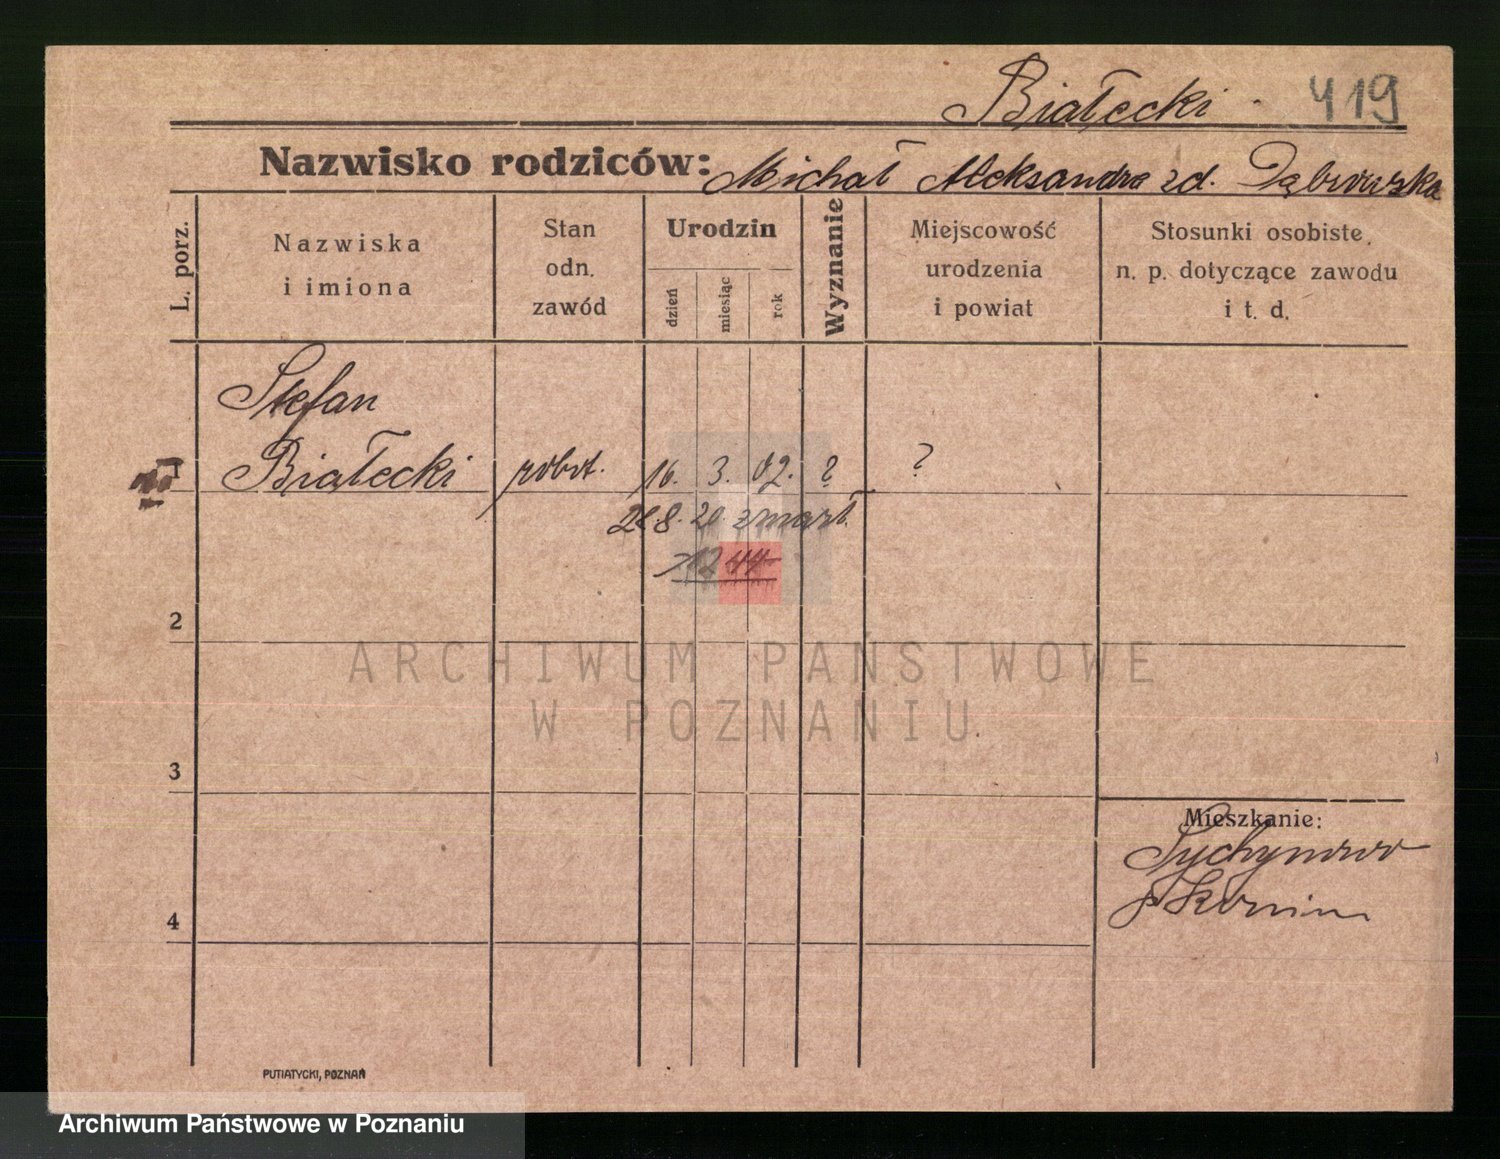 Białecki 419
Nazwisko rodziców: Michał Aleksandra zd. Dąbrowska
L. porz.
Nazwiska
i imiona
Stan
odn.
zawód
Urodzin
dzień
miesiąc
rok
Wyznanie
Miejscowość
urodzenia
i powiat
Stosunki osobiste,
n. p. dotyczące zawodu
i t. d.
Stefan
1 Białecki robot. 16. 3. 02. ? ?
8. 20 zmarł
2
ARCHIWUM PAŃSTWOWE
W POZNANIU
3
Mieszkanie:
4
PUTIATYCKI, POZNAŃ
Archiwum Państwowe w Poznaniu